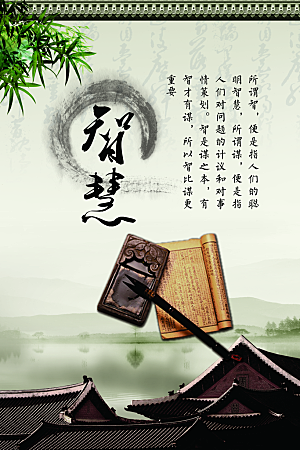 所谓智，便是指人们的聪
明智慧，所谓谋，便是指
人们对问题的计议和对事
情策划。智是谋之本，有
智才有谋，所以智比谋更
重要
智慧